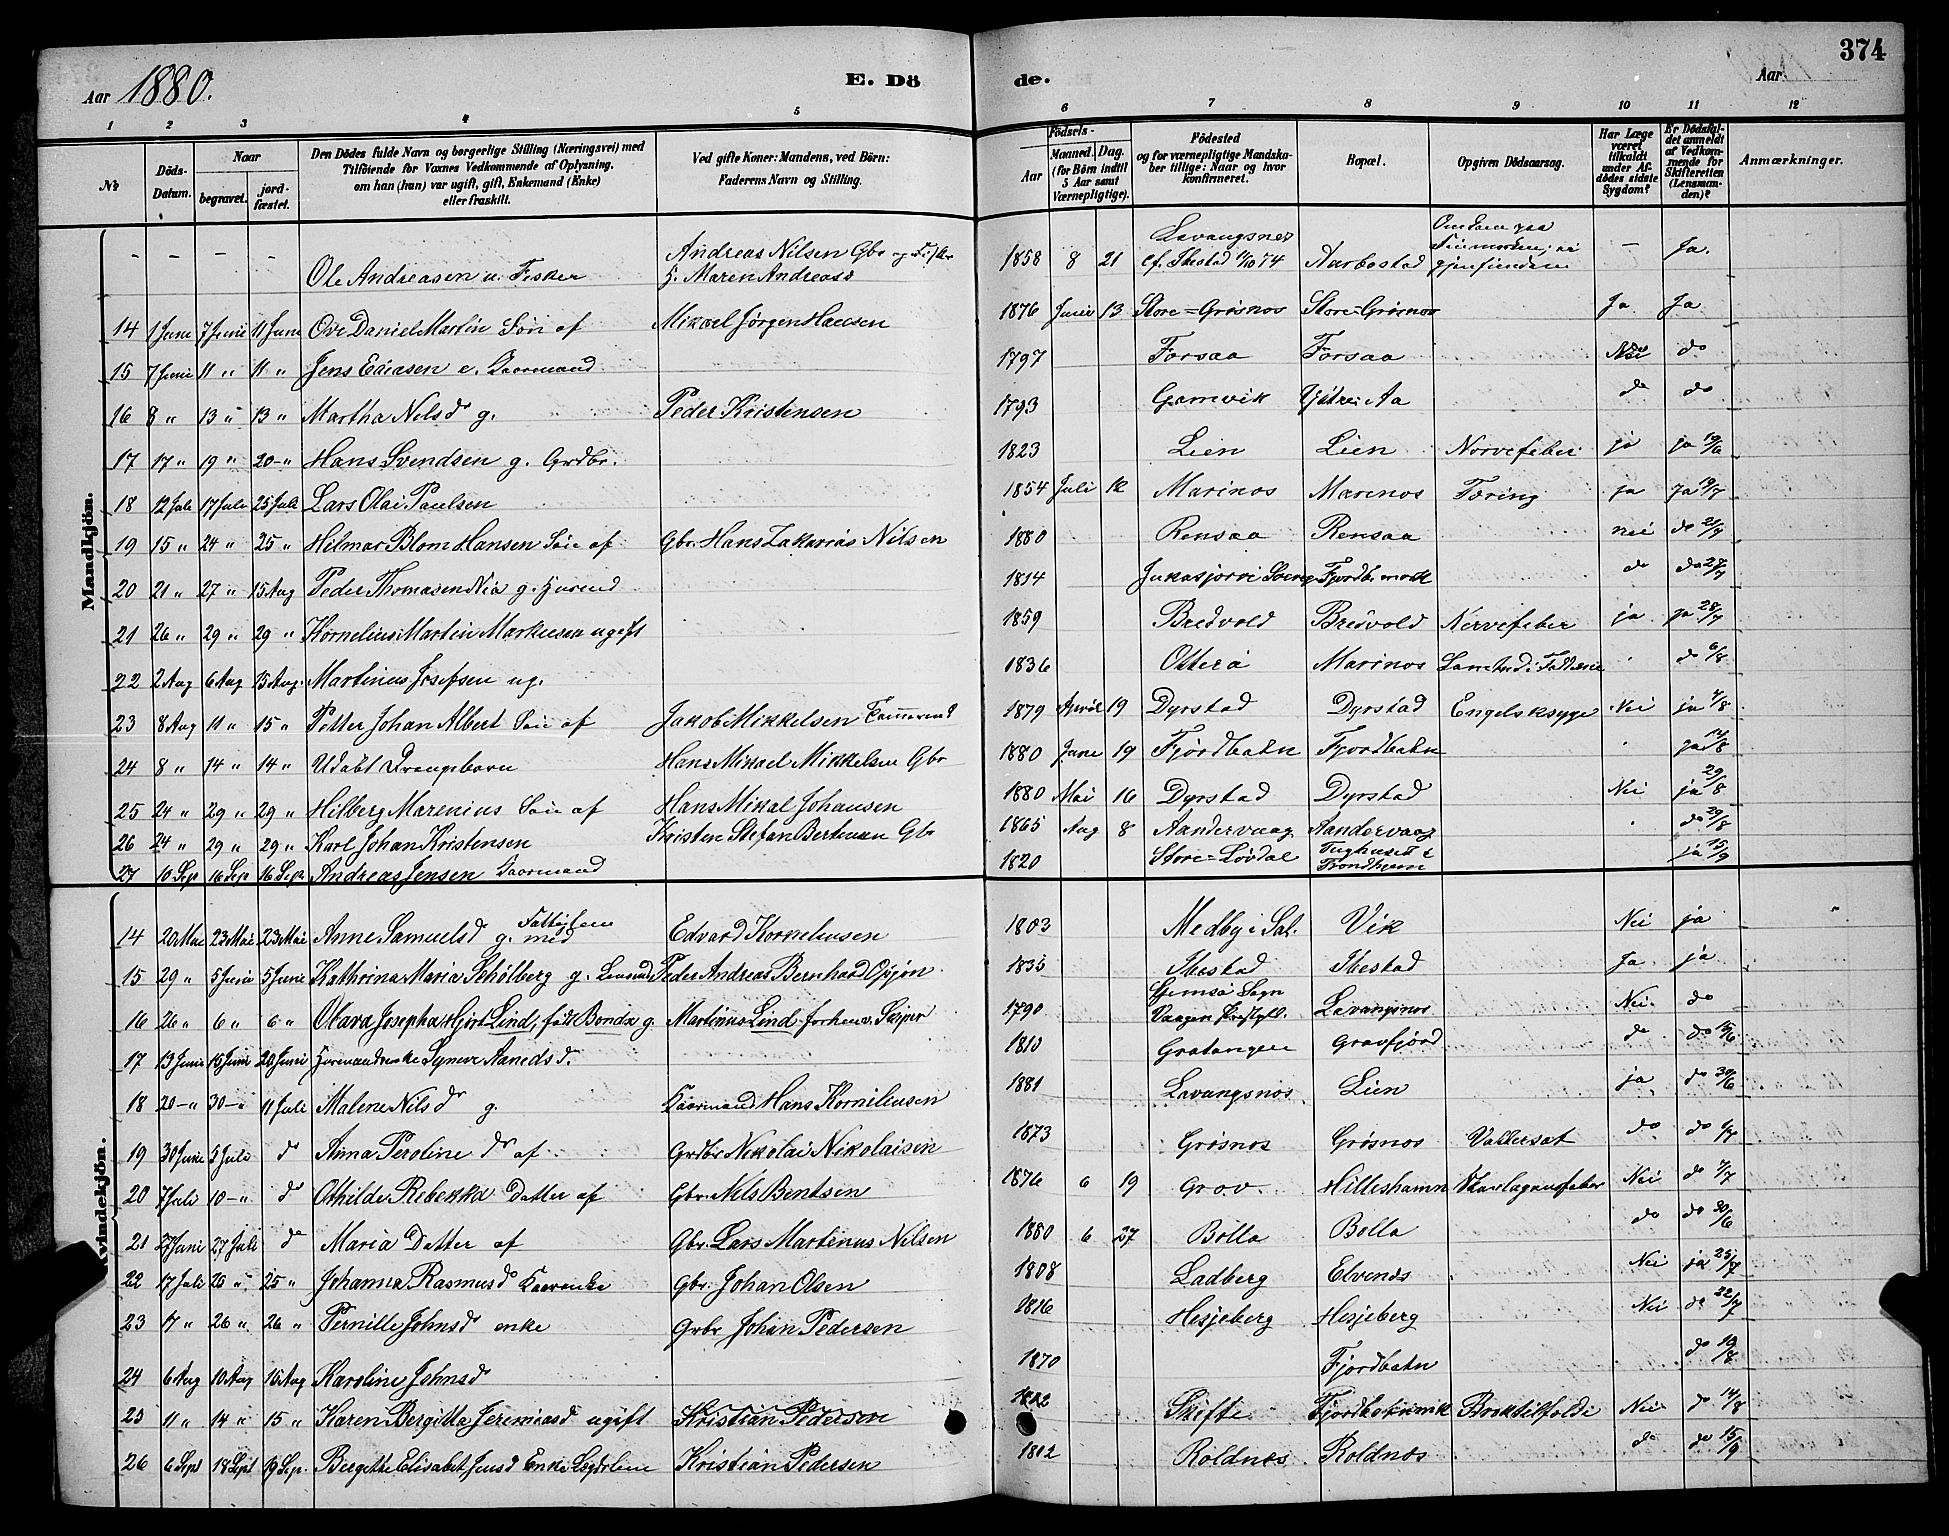 374
Aar 1880.
E. Dö de.
Aar
1 2 3 4 5 6 7 8 9 10 11 12
No
Döds-Datum.
Naar begravet. jordfæstet.
Den Dödes fulde Navn og borgerlige Stilling (Næringsvei) med Tilföiende for Voxnes Vedkommende af Oplysning, om han (hun) var ugift, gift, Enkemand (Enke) eller fraskilt.
Ved gifte Koner: Mandens, ved Börn: Faderens Navn og Stilling.
Födsels- Aar Maaned. Dag. (for Börn indtil 5 Aar samt Værnepligtige).
Födested og for værnepligtige Mandskaber tillige: Naar og hvor konfirmeret.
Bopæl.
Opgiven Dödsaarsag.
Har Læge været tilkaldt under Afdödes sidste Sygdom?
Er Dödsfaldet anmeldt af Vedkommende for Skifteretten (Lensmanden)?
Anmærkninger.
Mandkjön.
– – – – Ole Andreasen u. Fisker Andreas Nilsen Gbr og Fisker H. Maren Andreasd 1858 8 21 Lavangsnes cf. Ibestad 11/10 74 Aarbostad Omkom paa Finmarken; ei gjenfunden – Ja.
14 1 Juni 7 Juni 11 Juni Ove Daniel Martin Sön af Mikael Jørgen Hansen 1876 Juni 13 Store=Grøsnos Store=Grøsnos Ja Ja
15 7 Juni 11 " 11 " Jens Eliasen e. Kaarmand 1797 Forsaa Forsaa Nei do
16 8 " 13 " 13 " Martha Nilsd g. Peder Kristensen 1793 Gamvik Ystre Aa do do
17 17 " 19 " 20 –" Hans Svendsen g. Grdbr. 1823 Lien Lien Norvefeber ja ja 19/6
18 12 Juli 17 Juli 25 Juli Lars Olai Paulsen 1854 Juli 12 Marinos Marinos Tæring ja Ja 19/7
19 15 " 24 " 25 " Hilmar Blom Hansen Sön af Gbr. Hans Zakarias Nilsen 1880 Rensaa Rensaa nei do 21/7
20 21 " 27 " 15 Aug Peder Thomasen Nia g. Husmd 1814 Jukasjorvi Sverig Fjordbomark do do 27/7
21 26 " 29 " 29 " Kornelius Martin Markussen ugift 1859 Bredvold Bredvold Nervefeber ja ja 28/7
22 2 Aug 6 Aug 15 Aug. Martinius Josefsen ug. 1836 Otterø Marinos do 6/8
23 8 Aug 11 " 15 " Petter Johan Albert Sön af Jakob Mikkelsen 1879 19 Dyrstad Dyrstad Engelsksyge Nei ja 9/8
24 8 " 14 " 14 " Udøbt Drengebarn Hans Mikael Mikkelsen Gbr 1880 Juni 19 Fjordbotn Fjordbotn " ja 14/8
25 24 " 29 " 29 " Hilberg Marenius Sön af Hans Mikal Johansen 1880 Mai 16 Dyrstad Dyrstad Nei ja 29/8
26 24 " 29 " 29 " Karl Johan Kristensen Kristen Stefan Bertinsen Gbr 1865 Aug 8 Aandervaag Aandervaag " do 29/8
27 10 Sep 16 Sep 16 Sep Andreas Jensen Kaarmand 1820 Store=Løvdal Tugthuset i Trondhjem ja 15/9
Kvindekjön.
14 20 Mai 23 Mai 23 Mai Anne Samuelsd g. med Fattiglem Edvard Korneliusen 1803 Medby i Sal. Vik Nei ja
15 29 " 5 Juni 5 Juni Kathrina Maria Schölberg g. Peder Andreas Bernhard Öijön 1835 Ibestad Ibestad Ja ja
16 26 " 6 " 6 " Olava Josepha Hjort Lind, født Bonde g. Martinus Lind forhenv. Skipper 1790 Gimsø Sogn Vaagan Præstgjld. Lavangsnos Nei do
17 13 Juni 15 Juni 20 Juni Husmandsenke Synnve Aanedsd. 1810 Gratangen Gravfjord do do 16/6
18 20 –" 30 –" 11 Juli Malene Nilsd g. Kaarmand Hans Kornilensen 1881 Lavangsnos. Lien ja do 30/6
19 30 Juni 5 Juli do Anna Peroline dr af Grdbr Nikolai Nikolaisen 1873 Grøsnos Grøsnos Vattersot do do 6/7
20 7 Juli 10 –" do Othilde Rebekka Datter af Gbr. Nils Bentsen 1876 6 19 Grov. Hilleshamn Skarlagensfeber Nei do 7/7
21 27 Juni 27 Juli do Maria Datter af Gbr. Lars Martinus Nilsen 1880 6 27 Bolla Bolla do do 30/6
22 17 Juli 25 " 25 " Johanna Rasmusd Kaarenke Gbr. Johan Olsen 1808 Ladberg Elvenes Nei ja 25/7
23 17 " 26 " 26 " Pernille Johnsd enke Grbr Johan Pedersen 1816 Hesjeberg Hesjeberg Nei do 22/7
24 6 Aug 10 Aug 15 Aug Karoline Johnsd 1870 Fjordbotn do 10/8
25 11 " 14 " 15 " Karen Bergitta Jeremiasd ugift Kristian Pedersen Skifte Fjordbotnmark Broktilfælde Nei do 14/8
26 6 Sept 18 Sept 19 Sep. Bergitte Elisabet Jensd Enke Kristian Pedersen 1812 Roldnos Roldnos do do 15/9